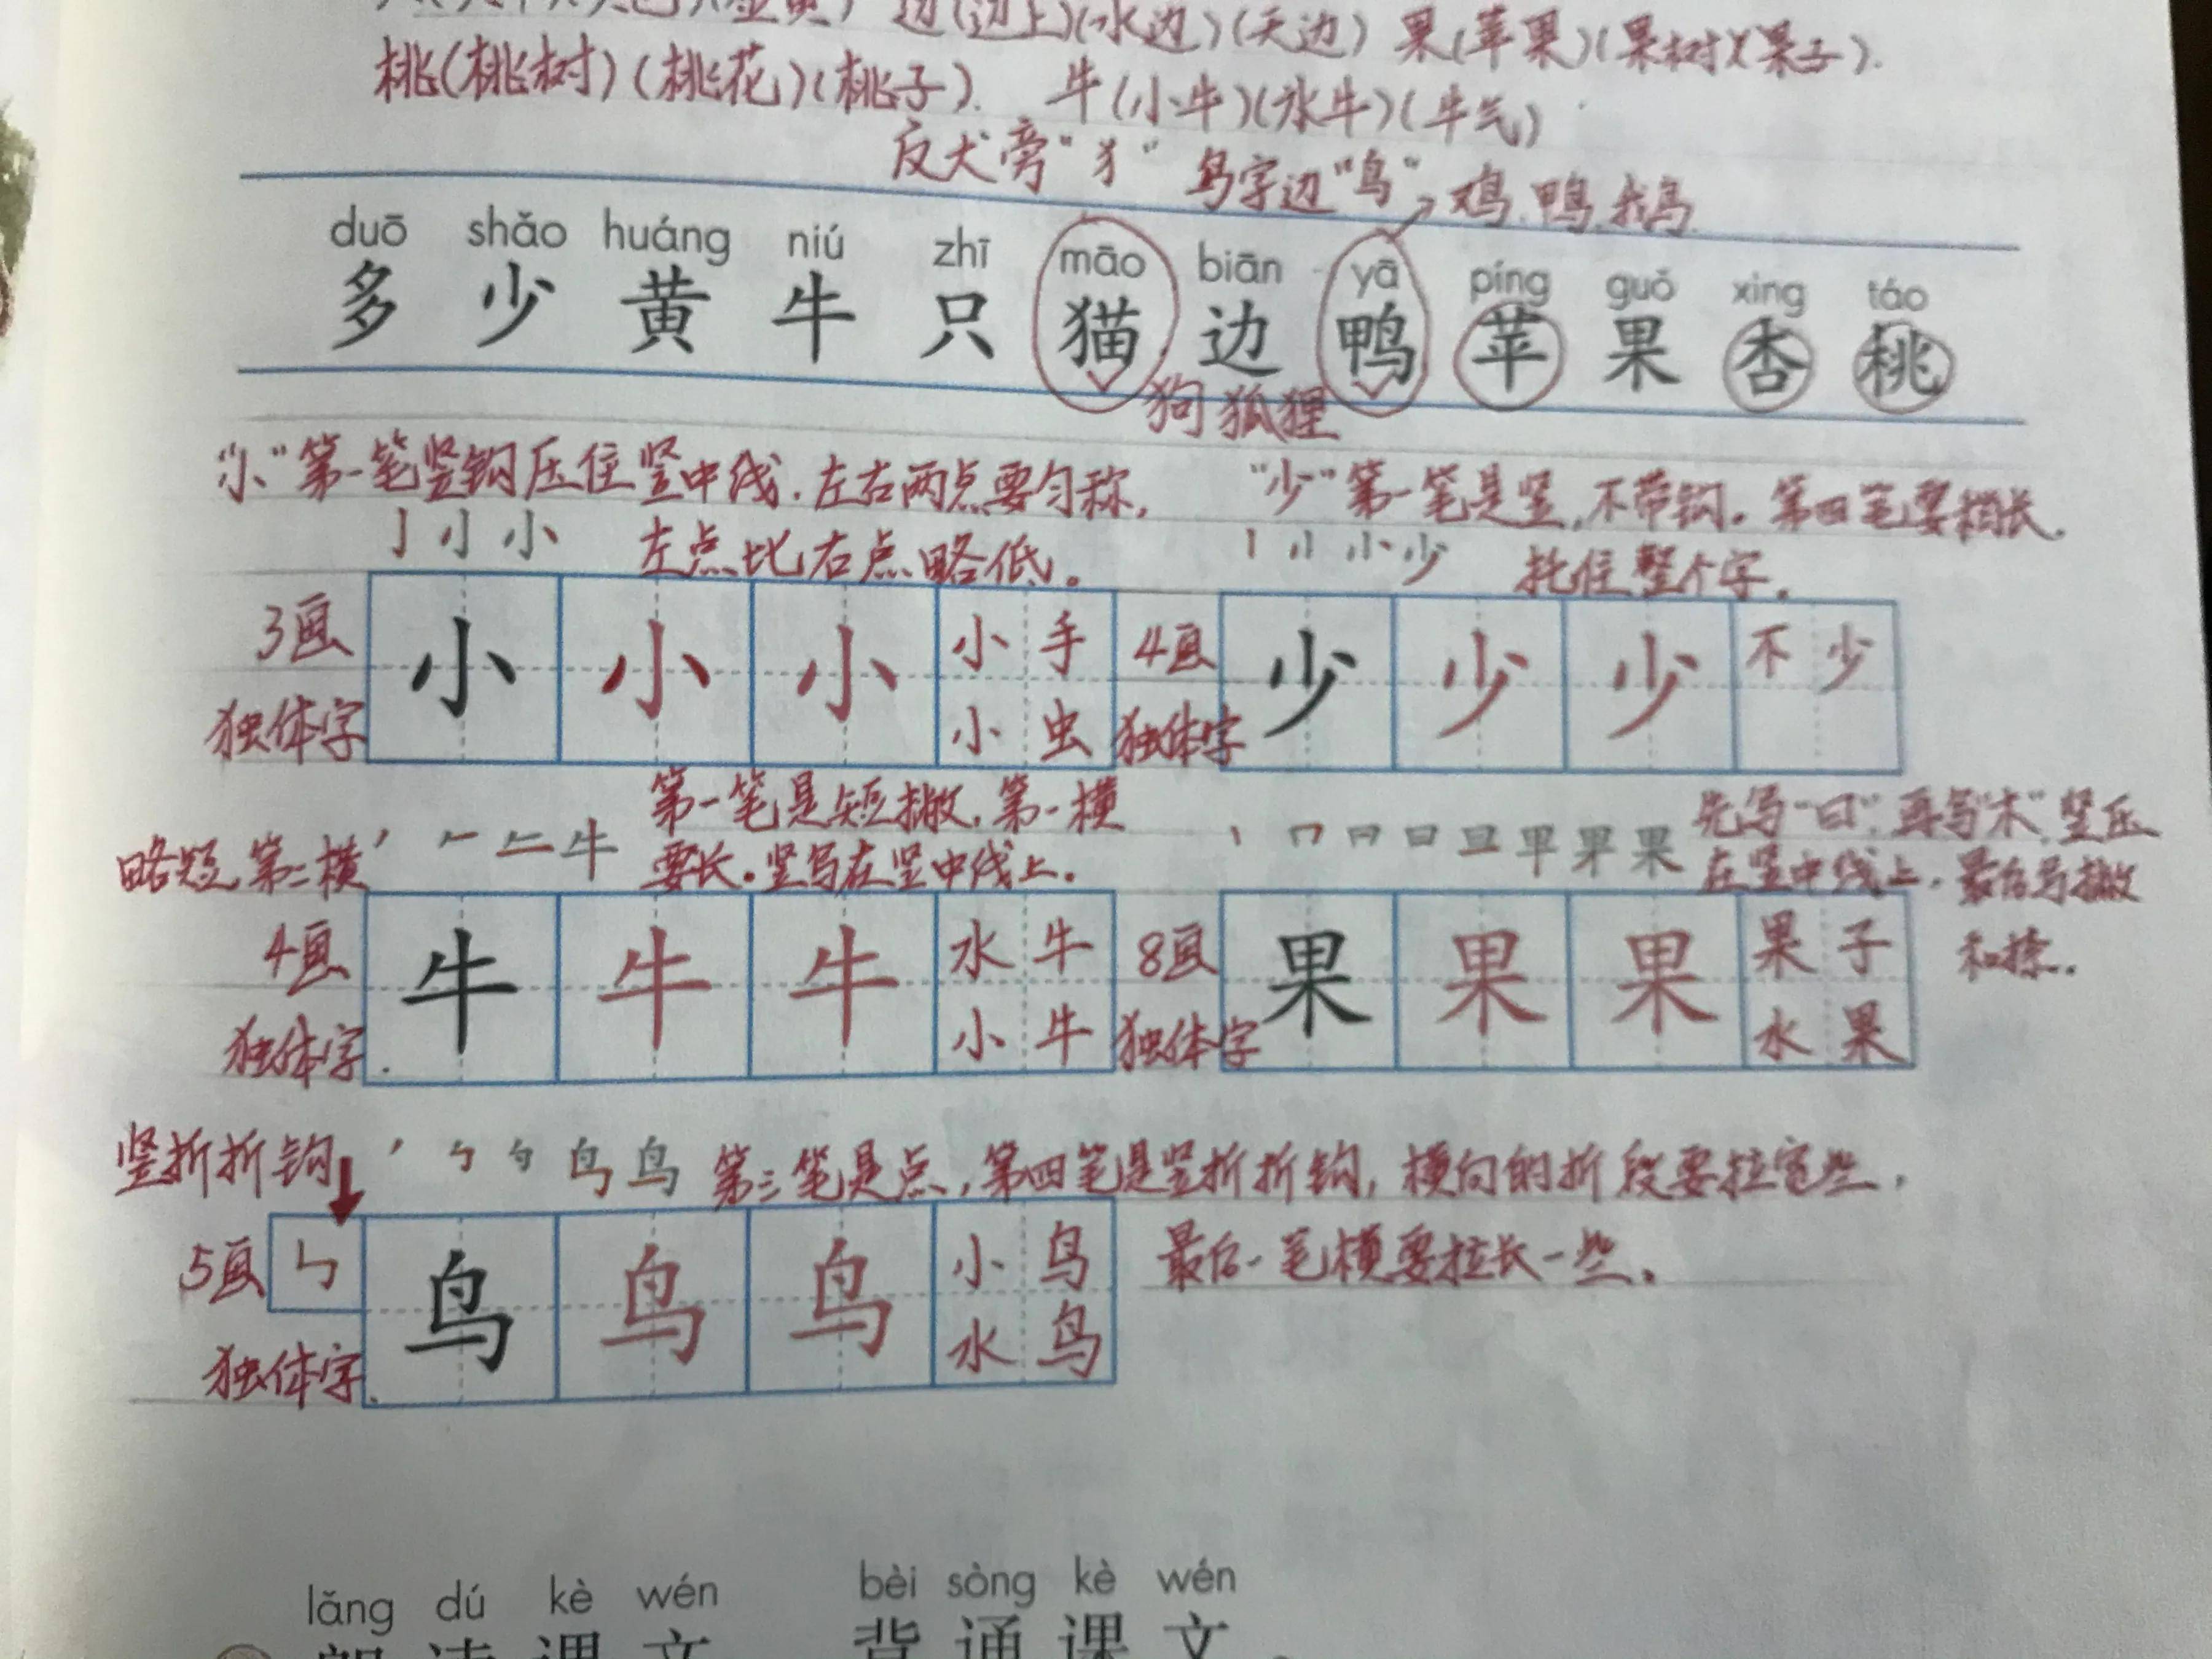 边(边上)(水边)(天边) 果(苹果)(果树)(果子).
桃(桃树)(桃花)(桃子). 牛(小牛)(水牛)(牛气)
反犬旁“犭” 鸟字边“鸟”→鸡 鸭 鹅
duō shǎo huáng niú zhī māo biān yā píng guǒ xìng táo
多 少 黄 牛 只 猫 边 鸭 苹 果 杏 桃
狗 狐狸
“小”第一笔竖钩压住竖中线.左右两点要匀称,
左点比右点略低。
“少”第一笔是竖,不带钩。第四笔要稍长.
托住整个字.
亅 小 小
小 少
3画 小 小 小 小手
独体字 小虫
4画 少 少 少 不少
独体字
第一笔是短撇,第一横
略短,第二横
要长。竖写在竖中线上.
牛
先写“曰”,再写“木”,竖压
在竖中线上.最后写撇
和捺.
丨 冂 日 旦 早 果 果
4画 牛 牛 牛 水牛
独体字. 小牛
8画 果 果 果 果子
独体字 水果
竖折折钩 鸟 鸟 第三笔是点,第四笔是竖折折钩,横向的折段要拉宽些,
最后一笔横要拉长一些.
5画 ㄣ 鸟 鸟 鸟 小鸟
独体字. 水鸟
lǎng dú kè wén bèi sòng kè wén
朗 读 课 文 背 诵 课 文。